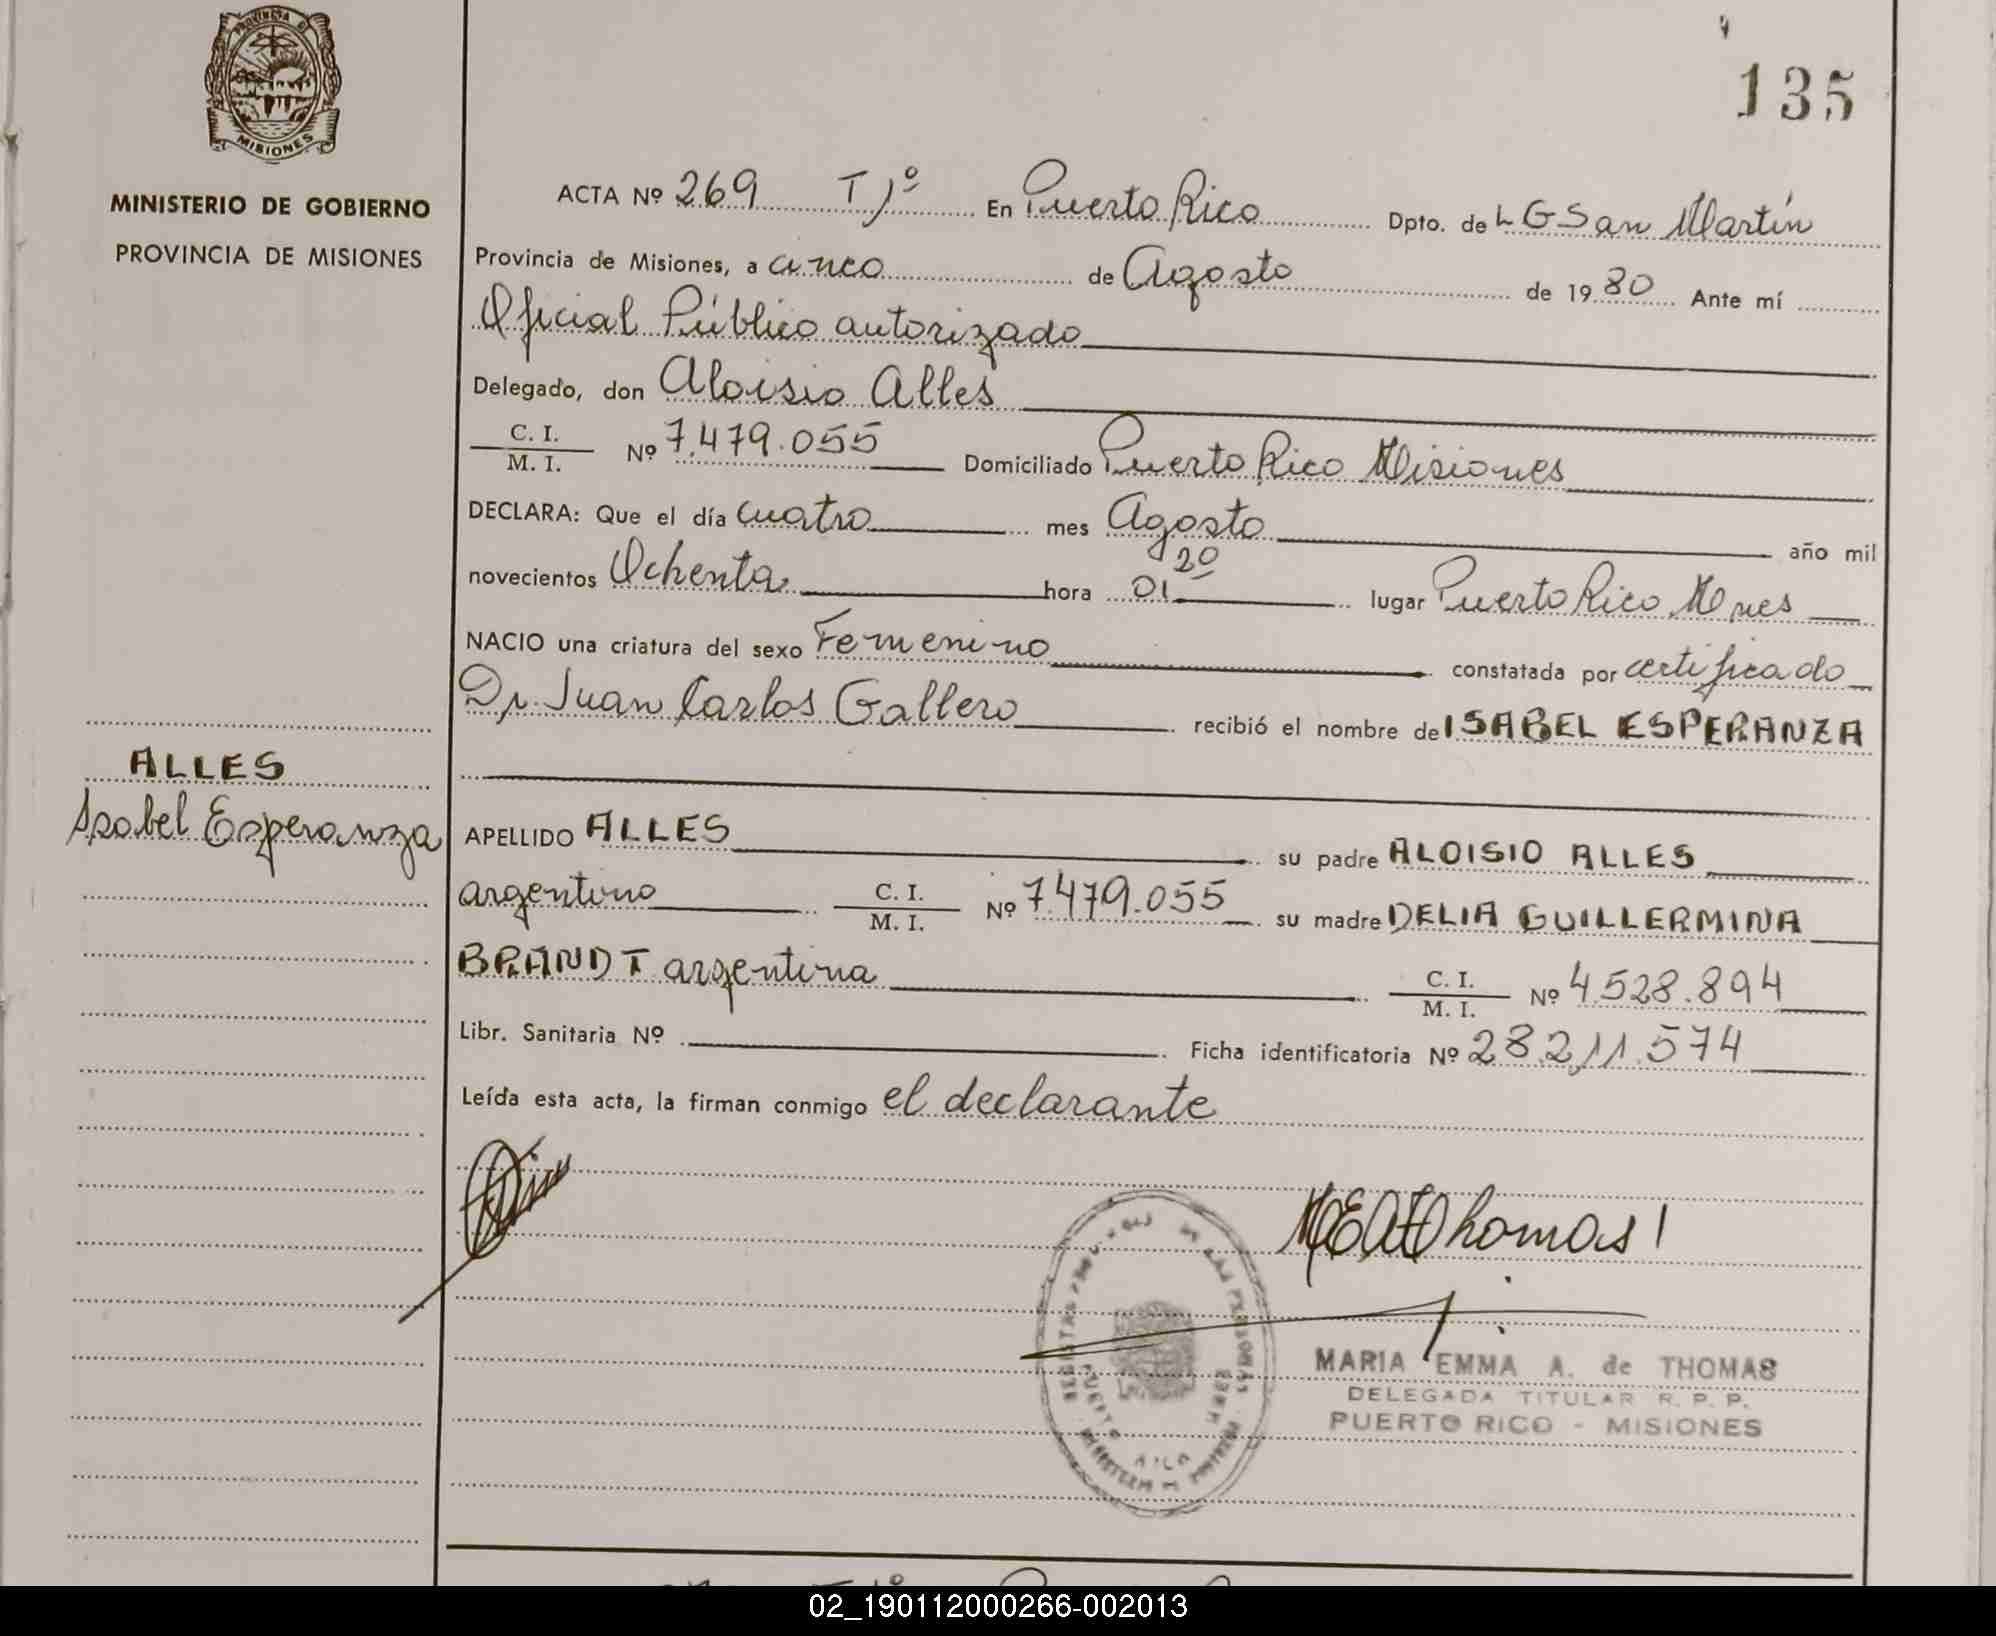 135
PROVINCIA DE
MISIONES
MINISTERIO DE GOBIERNO
PROVINCIA DE MISIONES
ACTA Nº 269 T 1º En Puerto Rico Dpto. de L G San Martín
Provincia de Misiones, a cinco de Agosto de 1980 Ante mí
Oficial Público autorizado
Delegado, don Aloisio Alles
C. I.
M. I. Nº 7.479.055 Domiciliado Puerto Rico Misiones
DECLARA: Que el día cuatro mes Agosto año mil
novecientos Ochenta hora 01 20 lugar Puerto Rico Mnes
NACIO una criatura del sexo Femenino constatada por certificado
Dr. Juan Carlos Gallero recibió el nombre de ISABEL ESPERANZA
ALLES
Isabel Esperanza
APELLIDO ALLES su padre ALOISIO ALLES
argentino C. I.
M. I. Nº 7.479.055 su madre DELIA GUILLERMINA
BRANDT argentina C. I.
M. I. Nº 4.528.894
Libr. Sanitaria Nº Ficha identificatoria Nº 28.211.574
Leída esta acta, la firman conmigo el declarante
MEAdeThomas
PUERTO RICO
MARIA EMMA A. de THOMAS
DELEGADA TITULAR R. P. P.
PUERTO RICO - MISIONES
02_190112000266-002013